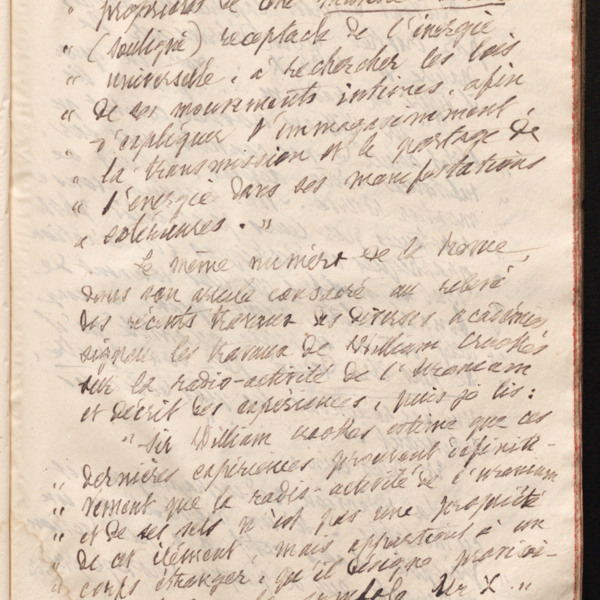 " propriétés de cette matière
" (souligné) receptacle de l'énergie
" universelle, à rechercher les lois
" de ses mouvements intimes, afin
" d'expliquer l'immagasinement,
" la transmission et le partage de
" l'énergie dans ses manifestations
" extérieures. "
Le même numéro de la Revue,
dans son article consacré au relevé
des récents travaux des diverses académies
signale les travaux de William Crookes
sur la radio-activité de l'Uranium
et décrit des expériences, puis je lis :
" Sir William Crookes estime que ces
" dernières expériences prouvent définiti-
" vement que la radio-activité de l'uranium
" et de ses sels n'est pas une propriété
" de cet élément, mais appartient à un
" corps étranger, qu'il désigne provisoi-
symbole Ur X. "